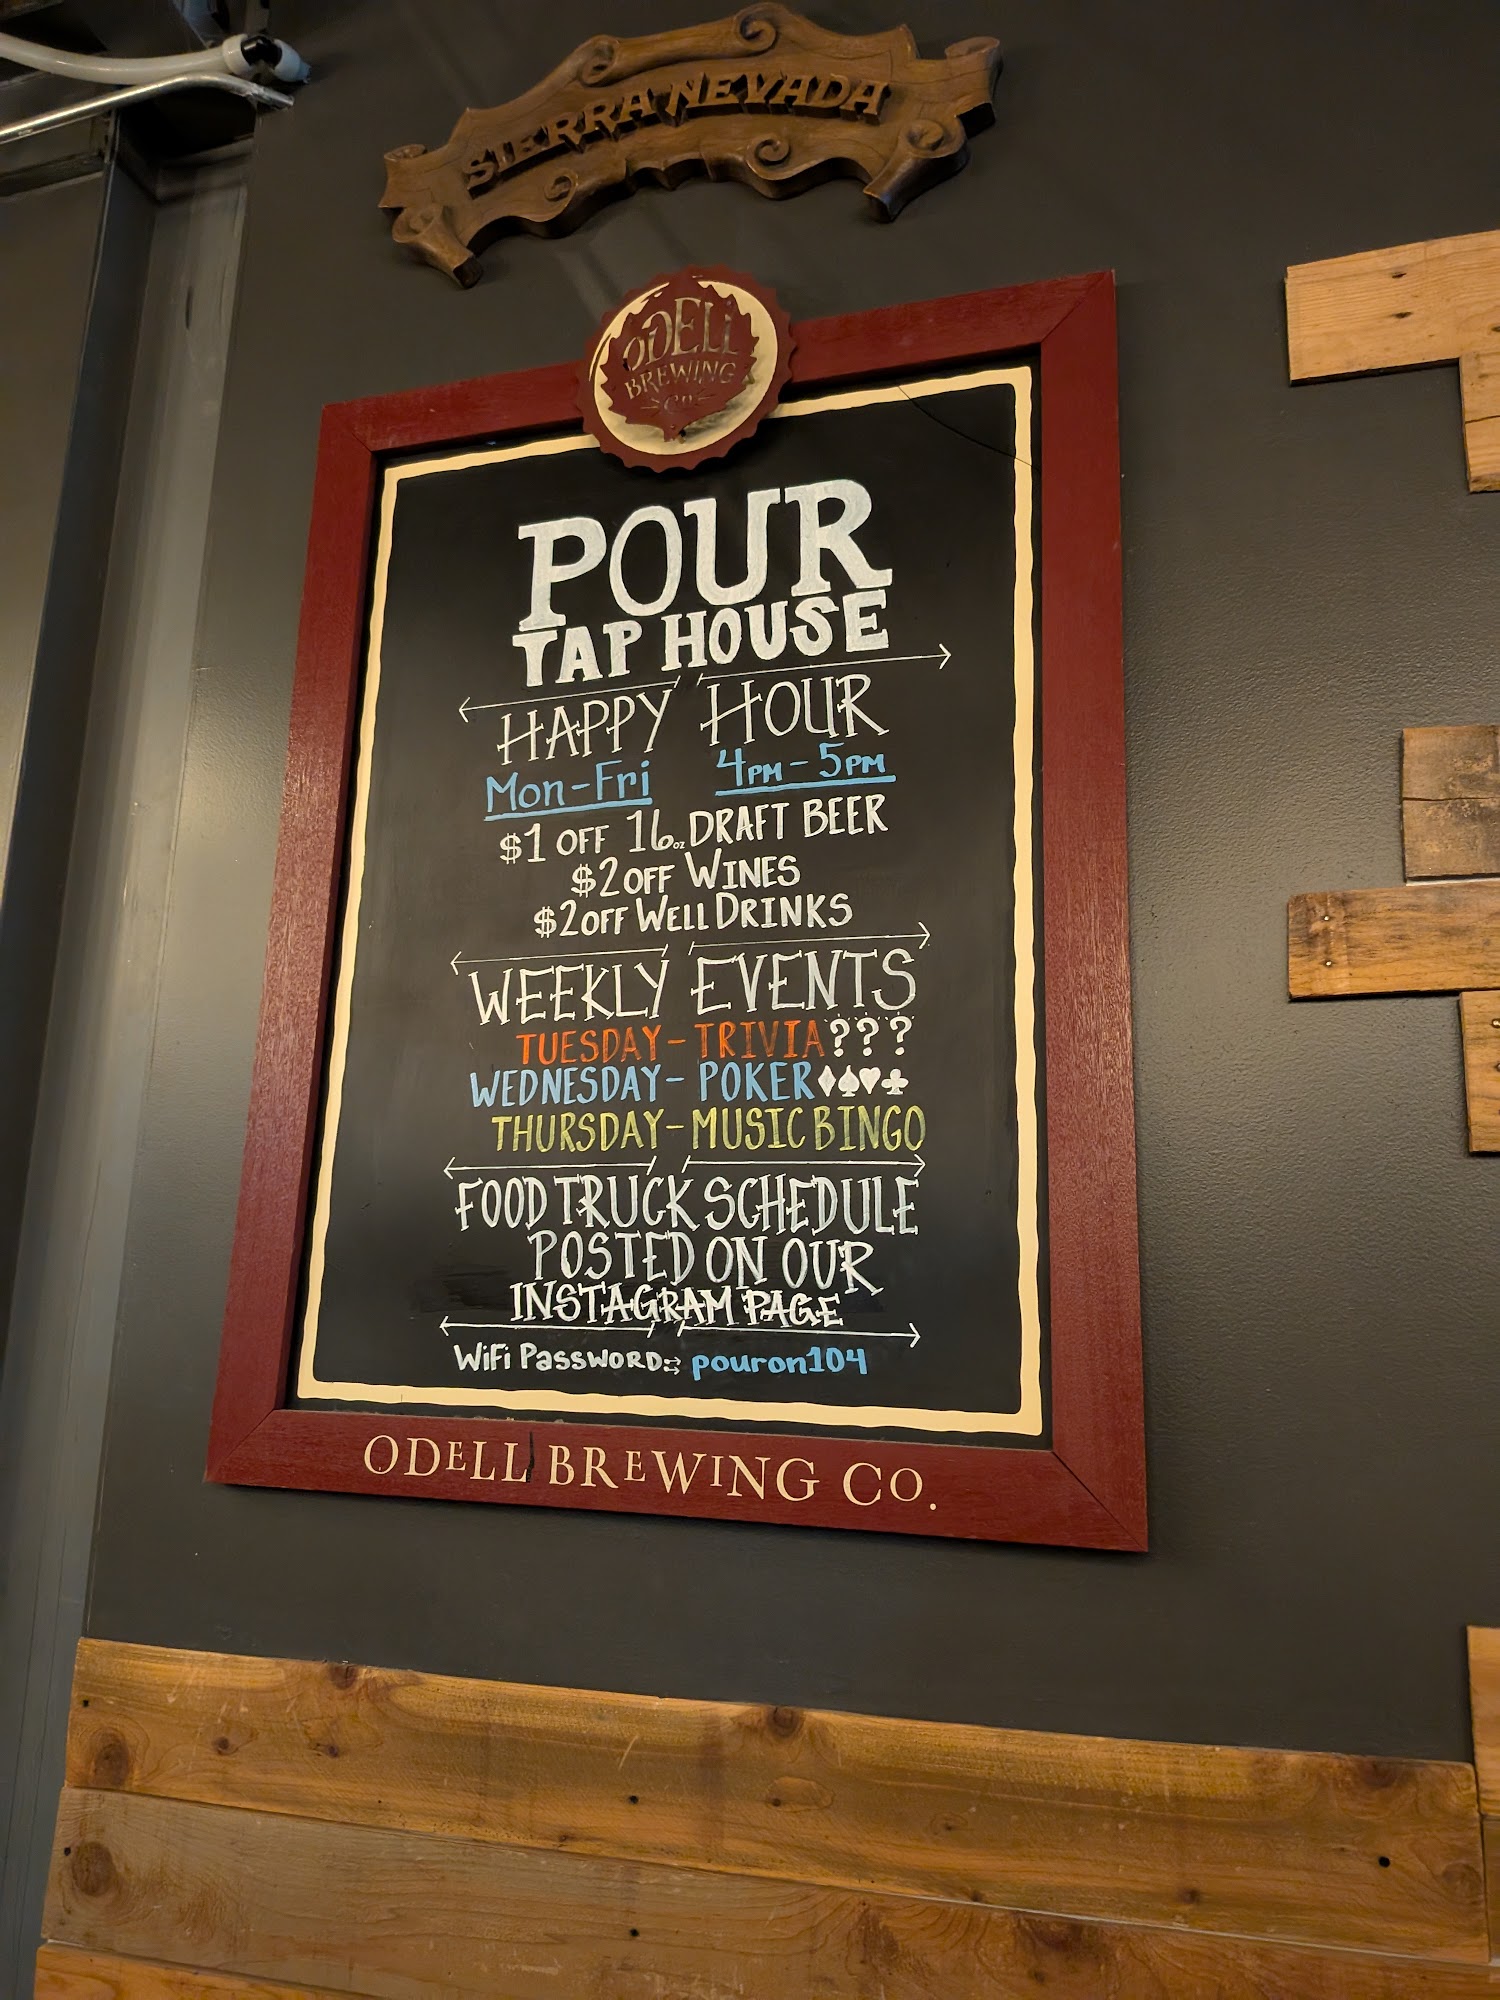 SIERRA NEVADA
ODELL
BREWING
CO
POUR
TAP HOUSE
HAPPY HOUR
Mon-Fri 4PM - 5PM
$1 OFF 16oz DRAFT BEER
$2 OFF WINES
$2 OFF WELL DRINKS
WEEKLY EVENTS
TUESDAY - TRIVIA ???
WEDNESDAY - POKER ♦♠♥♣
THURSDAY - MUSIC BINGO
FOOD TRUCK SCHEDULE
POSTED ON OUR
INSTAGRAM PAGE
WiFi PASSWORD: pouron104
ODELL BREWING CO.